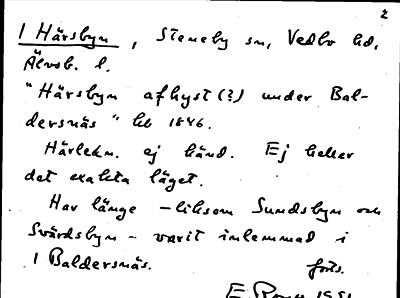 2
1 Härsbyn, Steneby sn, Vedbo hd,
Älvsb. l.
"Härsbyn afhyst (?) under Bal-
dersnäs" hb 1846.
Härledn. ej känd. Ej heller
det exakta läget.
Har länge – liksom Sundsbyn och
Svärdsbyn – varit inlemmad i
1 Baldersnäs.
forts.
E. 1951